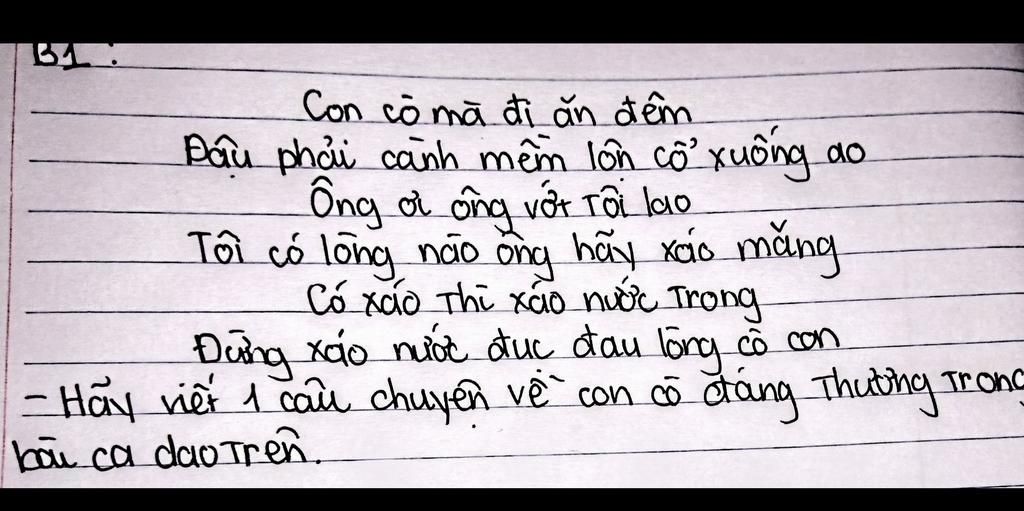 B1 :
Con cò mà đi ăn đêm
Đậu phải cành mềm lộn cổ xuống ao
Ông ơi ông vớt tôi lao
Tôi có lòng nào ông hãy xáo măng
Có xáo thì xáo nước trong
Đừng xáo nước đục đau lòng cò con
- Hãy viết 1 câu chuyện về con cò đáng thương trong
bài ca dao trên.